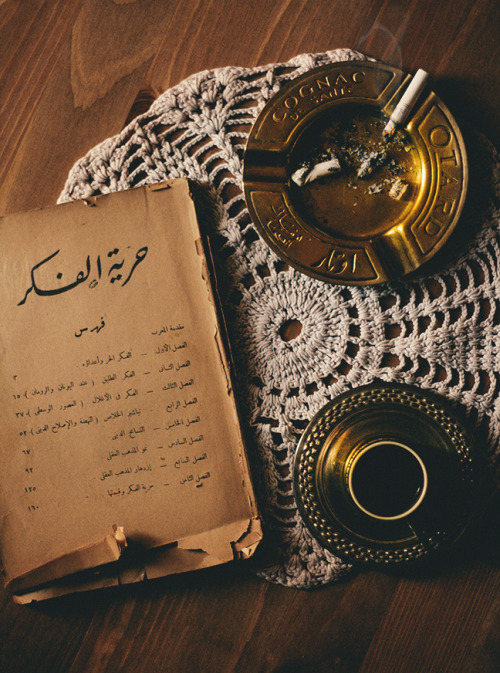 حرية الفكر
فهرس
مقدمة المعرب
الفصل الأول — الفكر الحر وأعداؤه ٣
الفصل الثاني — الفكر الطليق ( عند اليونان والرومان ) ١٥
الفصل الثالث — الفكر في الأغلال ( العصور الوسطى ) ٣٧
الفصل الرابع — تباشير الخلاص ( النهضة والإصلاح الديني ) ٥٢
الفصل الخامس — التسامح الديني ٦٧
الفصل السادس — نمو المذهب العقلي ٩٢
الفصل السابع — ازدهار المذهب العقلي ١٢٥
الفصل الثامن — حرية الفكر وقيمتها ١٦٠
COGNAC
OTARD
أوتار